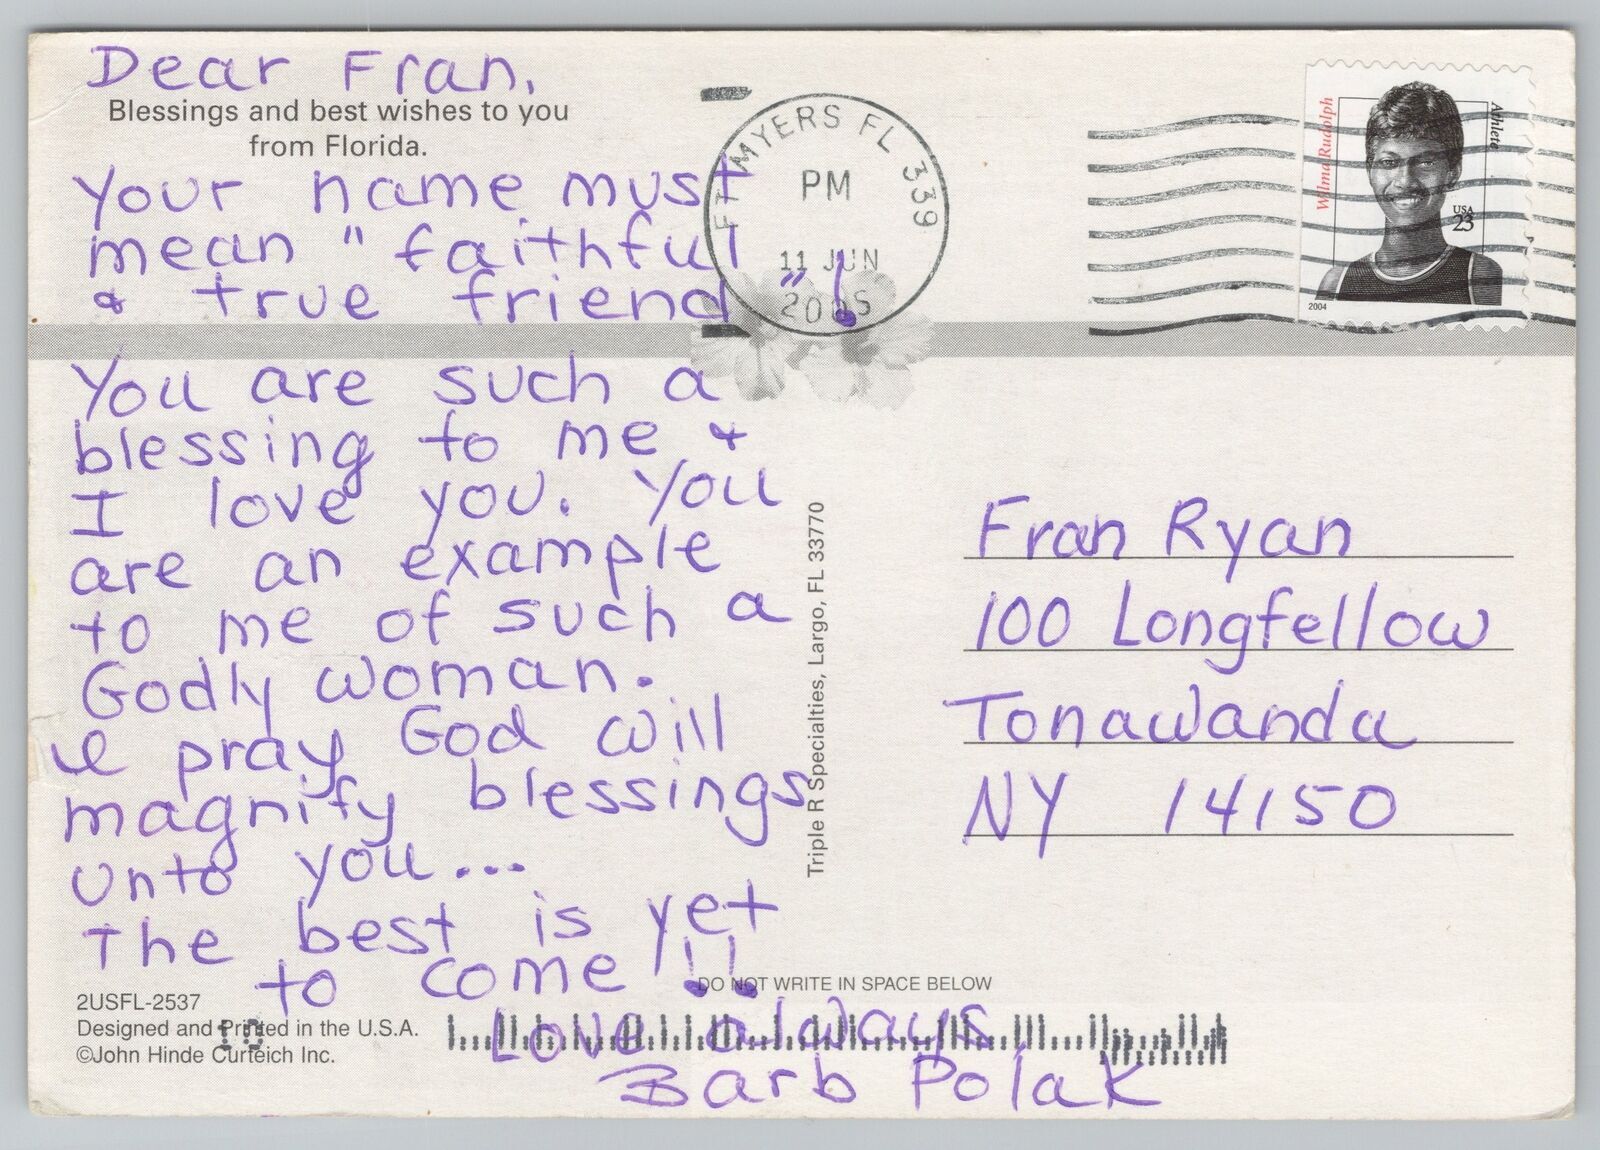 Dear Fran,
Blessings and best wishes to you
from Florida.
Your name must
mean "faithful
& true friend"!
You are such a
blessing to me &
I love you. You
are an example
to me of such a
Godly woman.
I pray God will
magnify blessings
unto you...
The best is yet
to come!!
Love always,
Barb Polak
2USFL-2537
Designed and Printed in the U.S.A.
©John Hinde Curteich Inc.
10
DO NOT WRITE IN SPACE BELOW
Triple R Specialties, Largo, FL 33770
FT MYERS FL 339
PM
11 JUN
Wilma Rudolph
Athlete
USA
23
2004
Fran Ryan
100 Longfellow
Tonawanda
NY 14150